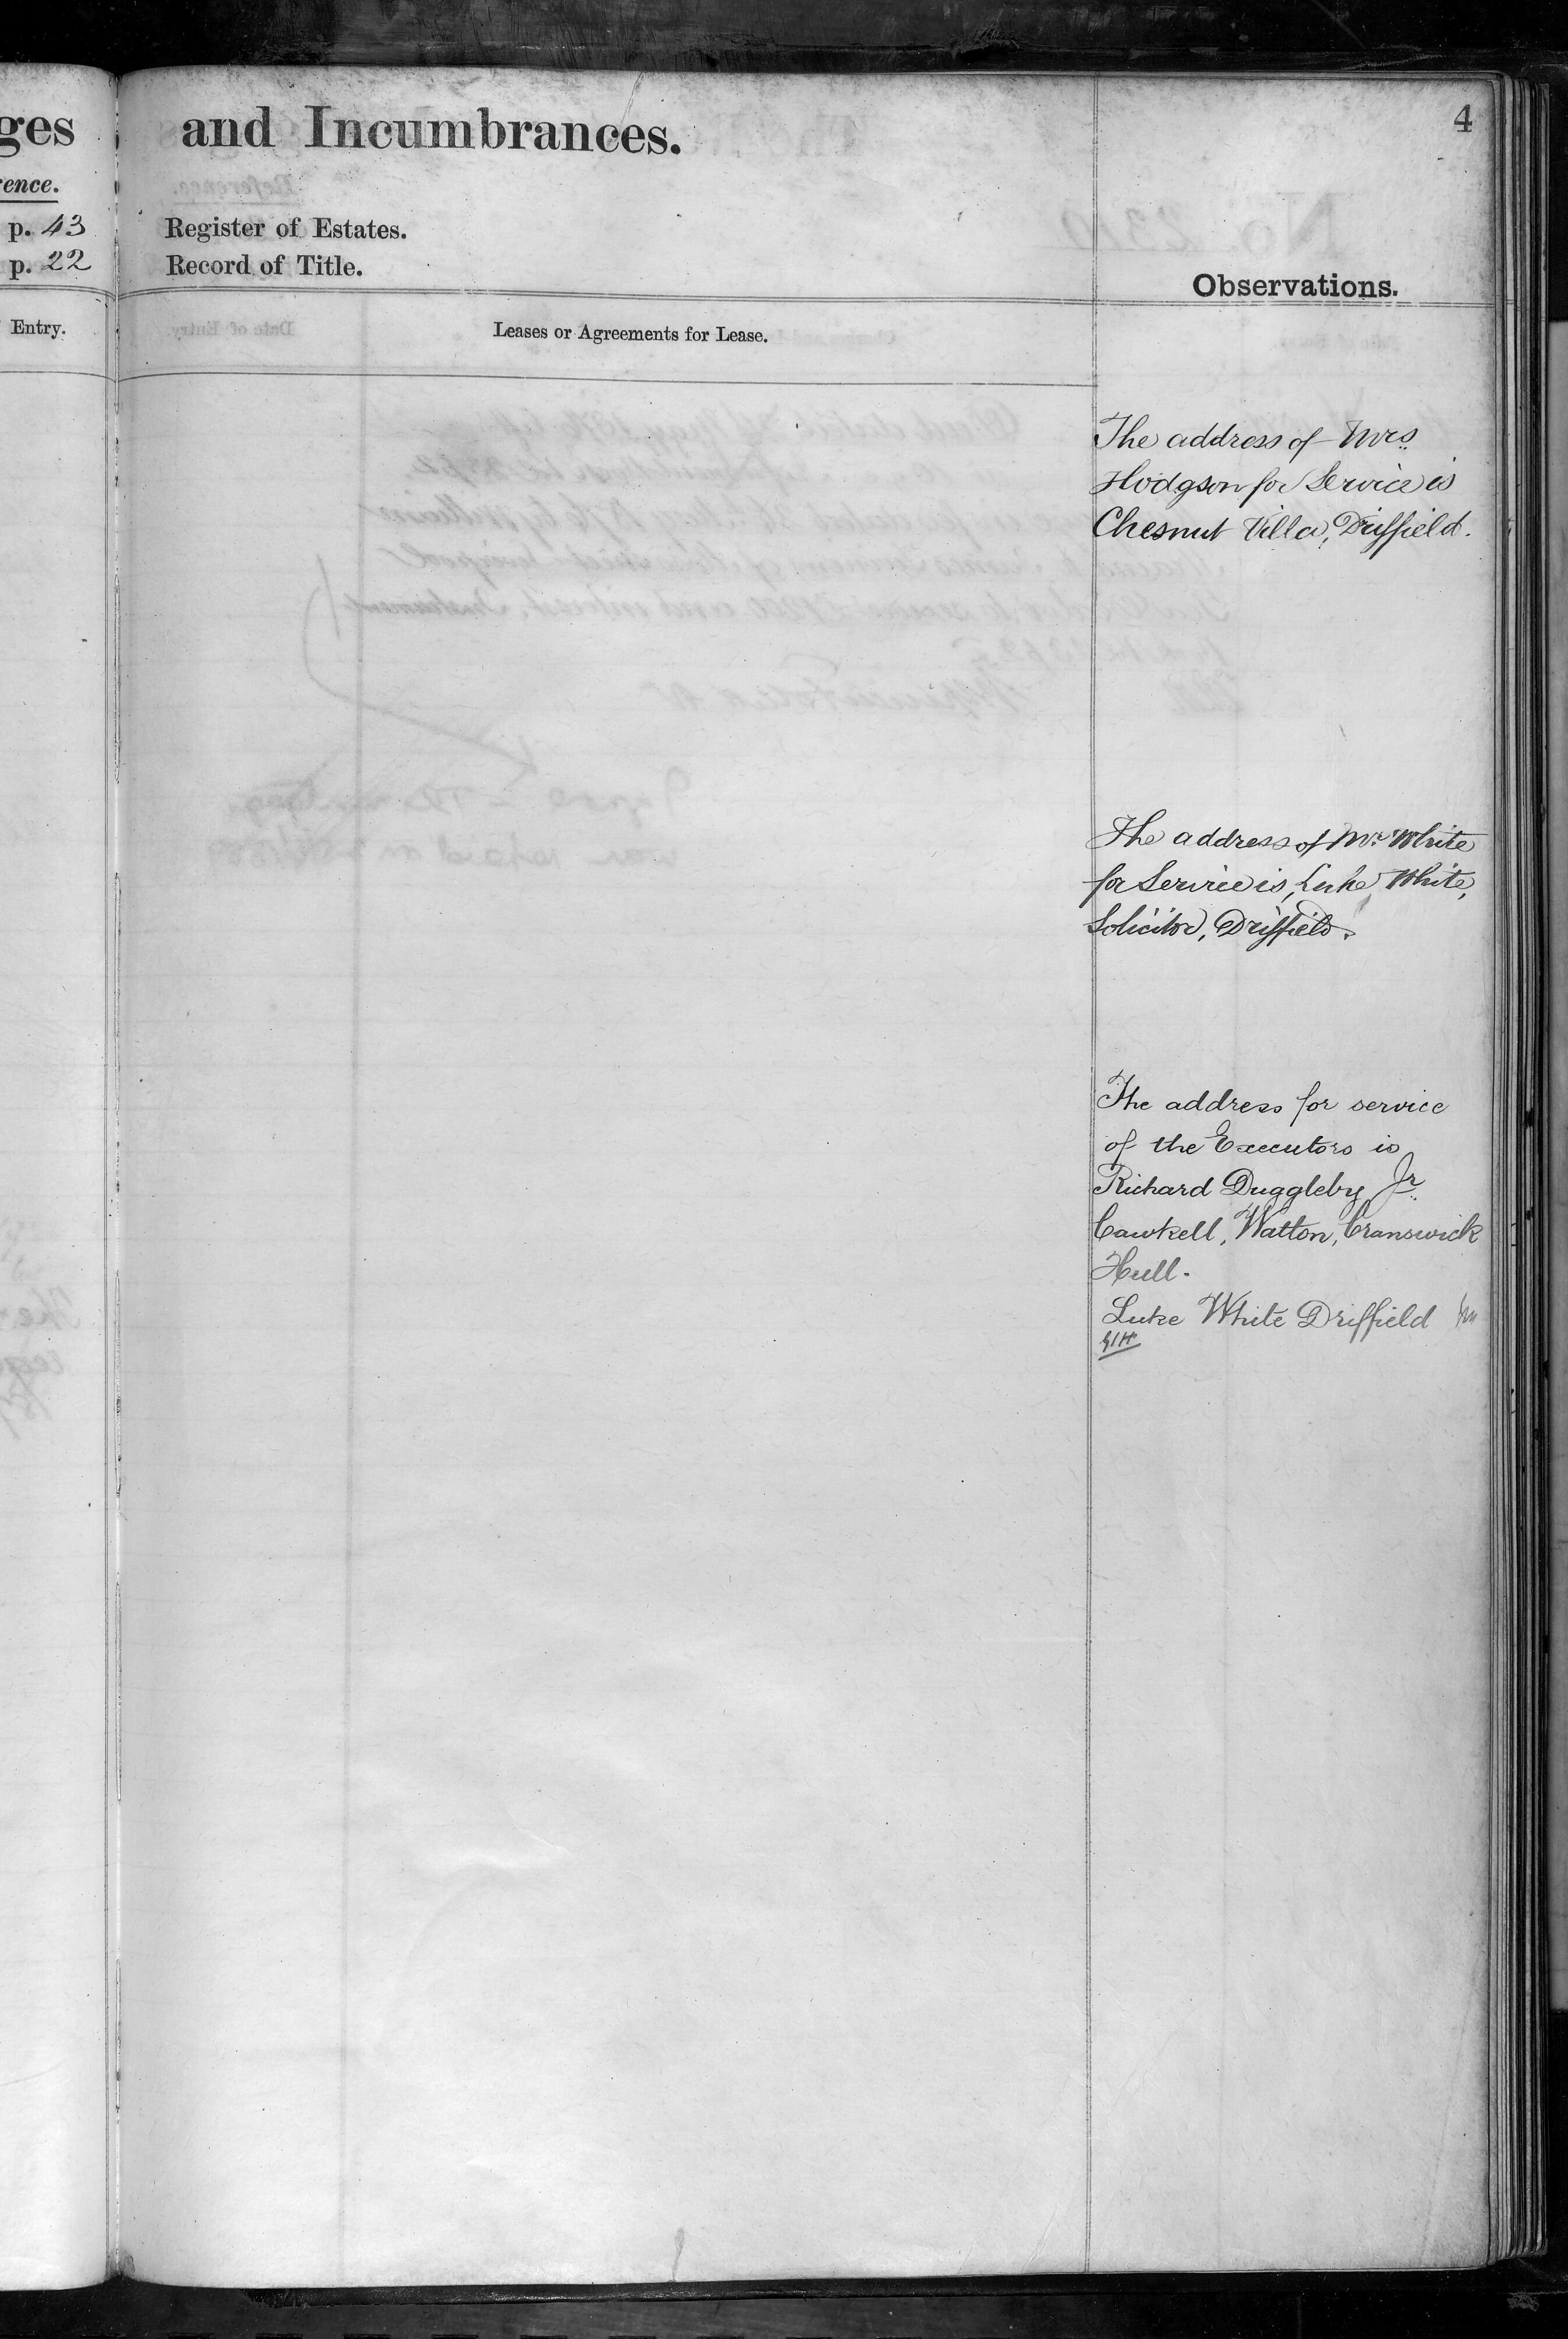 ges
and Incumbrances.
4
rence.
p. 43
Register of Estates.
p. 22
Record of Title.
Observations.
Entry.
Leases or Agreements for Lease.
The address of Mrs
Hodgson for Service is
Chesnut Villa, Driffield.
The address of Mr. White
for Service is, Luke White,
Solicitor, Driffield.
The address for service
of the Executors is
Richard Duggleby Jr
Cawkell, Watton, Cranswick
Hull.
Luke White Driffield